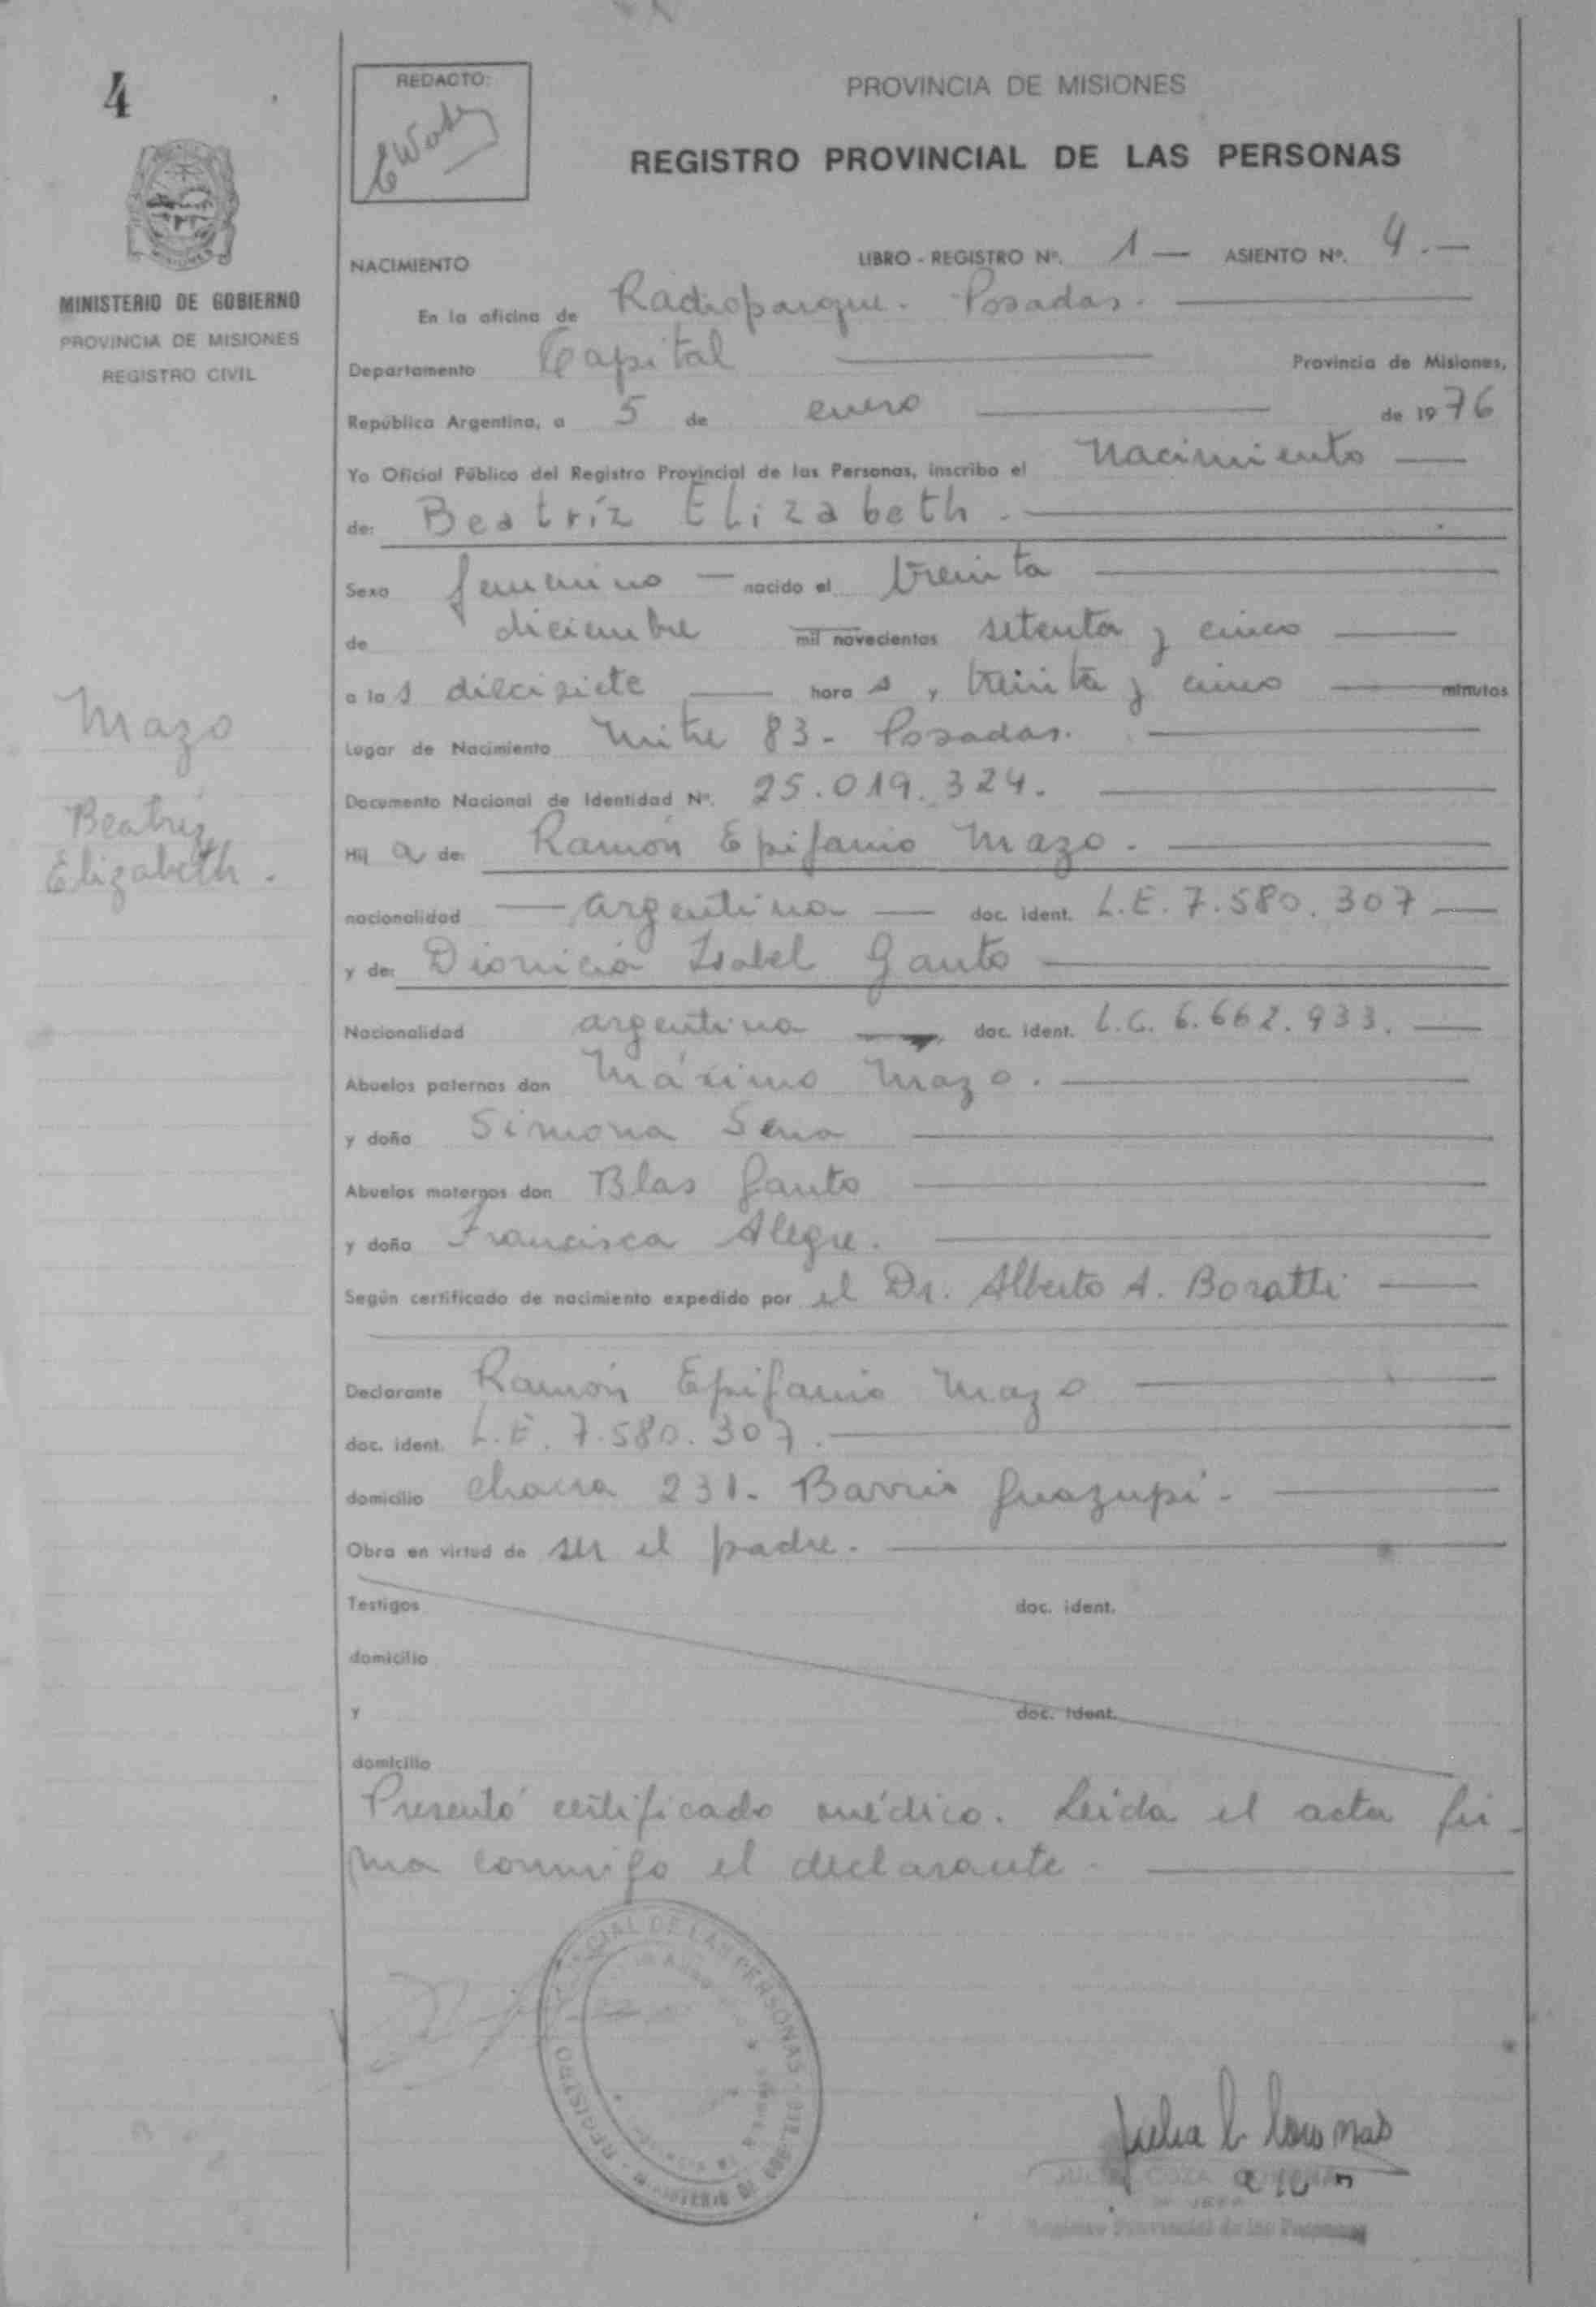 4
REDACTO:
PROVINCIA DE MISIONES
REGISTRO PROVINCIAL DE LAS PERSONAS
MINISTERIO DE GOBIERNO
PROVINCIA DE MISIONES
REGISTRO CIVIL
NACIMIENTO LIBRO - REGISTRO Nº. 1 — ASIENTO Nº. 4.—
En la oficina de Radioparque. Posadas.
Departamento Capital Provincia de Misiones,
República Argentina, a 5 de enero de 1976
Yo Oficial Público del Registro Provincial de las Personas, inscribo el Nacimiento
de: Beatríz Elizabeth.
Sexo femenino — nacido el treinta
de diciembre mil novecientos setenta y cinco
a las diecisiete horas, treinta y cinco minutos
Lugar de Nacimiento Mitre 83. Posadas.
Documento Nacional de Identidad Nº. 25.019.324.
Hija de: Ramón Epifanio Mazo.
nacionalidad — argentina — doc. ident. L.E. 7.580.307
y de: Dionicia Isabel Gauto
Nacionalidad argentina doc. ident. L.C. 6.662.933.
Abuelos paternos don Máximo Mazo.
y doña Simona Sena
Abuelos maternos don Blas Gauto
y doña Francisca Alegre.
Según certificado de nacimiento expedido por el Dr. Alberto A. Boratti
Declarante Ramón Epifanio Mazo
doc. ident. L.E. 7.580.307.
domicilio chacra 231. Barrio Guazupí.
Obra en virtud de ser el padre.
Testigos doc. ident.
domicilio
y doc. ident.
domicilio
Presentó certificado médico. Leída el acta fir-
ma conmigo el declarante.
Mazo
Beatriz
Elizabeth.
REGISTRO PROVINCIAL DE LAS PERSONAS
MINISTERIO DE
JEFA
Registro Provincial de las Personas